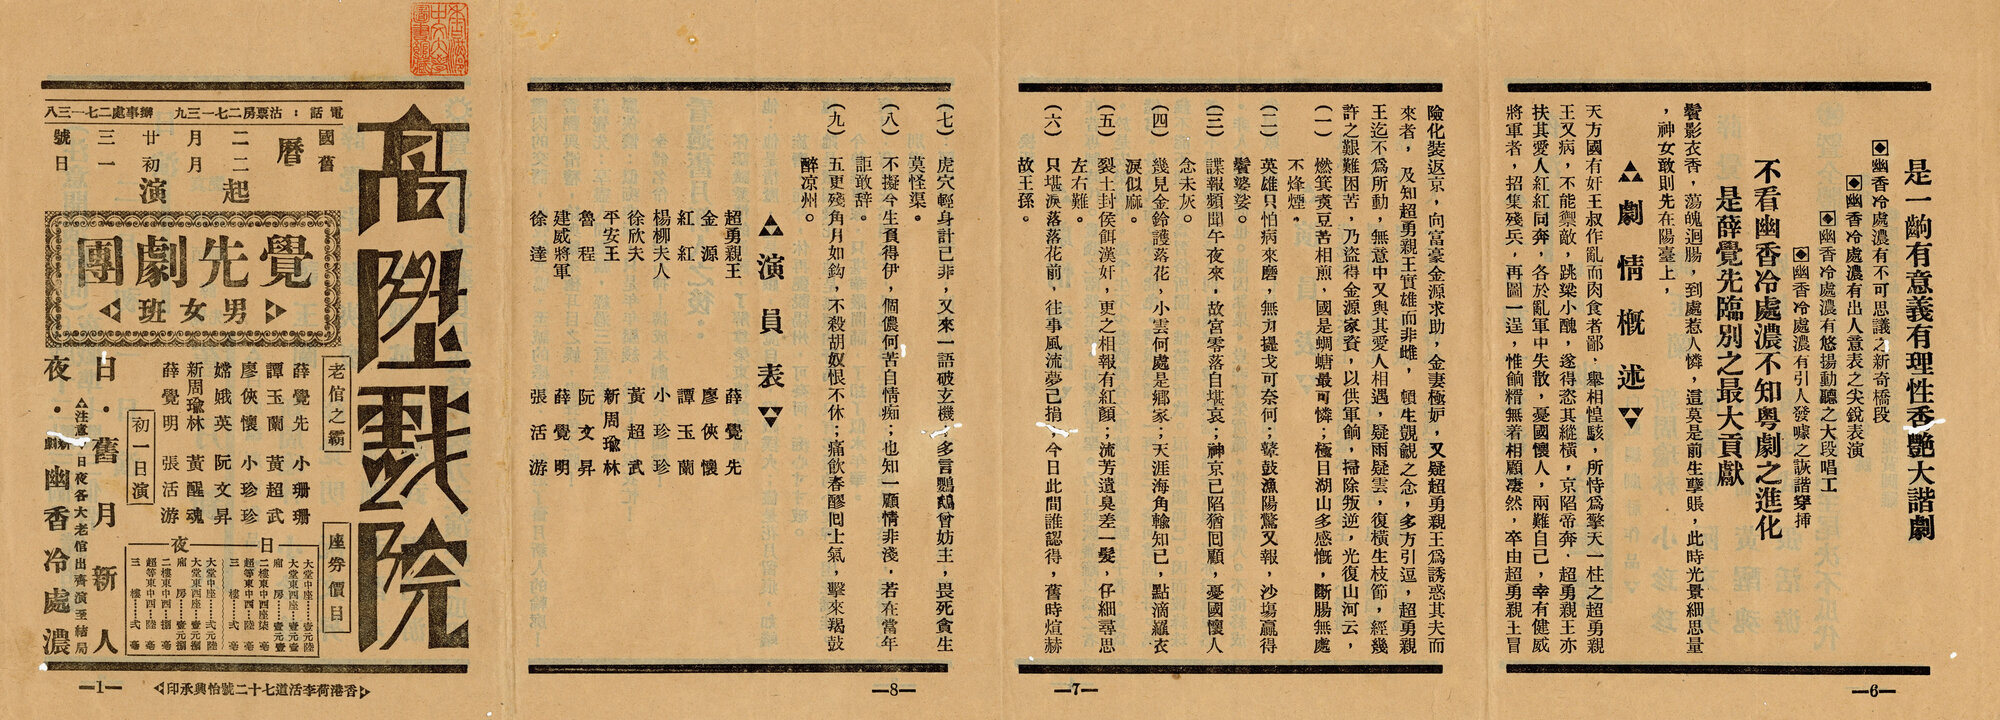 是一齣有意義有理性香艷大諧劇
◈幽香冷處濃有不可思議之新奇橋段
◈幽香冷處濃有出人意表之尖銳表演
◈幽香冷處濃有悠揚動聽之大段唱工
◈幽香冷處濃有引人發噱之詼諧穿挿
不看幽香冷處濃不知粵劇之進化
是薛覺先臨別之最大貢獻
鬢影衣香，蕩魄迴腸，到處惹人憐，這莫是前生孽賬，此時光景細思量
，神女敢則先在陽臺上，
劇情概述
天方國有奸王叔作亂而肉食者鄙，舉相惶駭，所恃為擎天一柱之超勇親
王又病，不能禦敵，跳梁小醜，遂得恣其縱橫，京陷帝奔，超勇親王亦
扶其愛人紅紅同奔，各於亂軍中失散，憂國懷人，兩難自已，幸有健威
將軍者，招集殘兵，再圖一逞，惟餉糈無着相顧凄然，卒由超勇親王冒
—6—
險化裝返京，向富豪金源求助，金妻極妒，又疑超勇親王為誘惑其夫而
來者，及知超勇親王實雄而非雌，頓生覬覦之念，多方引逗，超勇親
王迄不為所動，無意中又與其愛人相遇，疑雨疑雲，復橫生枝節，經幾
許之艱難困苦，乃盜得金源家資，以供軍餉，掃除叛逆，光復山河云，
(一) 燃箕煑豆苦相煎，國是蜩螗最可憐；極目湖山多感慨，斷腸無處
不烽煙，
(二) 英雄只怕病來磨，無力提戈可奈何；鼙鼓漁陽驚又報，沙塲贏得
鬢婆娑。
(三) 諜報頻聞午夜來，故宮零落自堪哀；神京已陷猶囘顧，憂國懷人
念未灰。
(四) 幾見金鈴護落花，小雲何處是鄉家；天涯海角輸知已，點滴羅衣
淚似麻。
(五) 裂土封侯餌漢奸，更之相報有紅顏；流芳遺臭差一髮，仔細尋思
左右難。
(六) 只堪淚落落花前，往事風流夢己捐；今日此間誰認得，舊時煊赫
故王孫。
—7—
(七) 虎穴輕身計己非，又來一語破玄機；多言鸚鵡曾妨主，畏死貪生
莫怪渠。
(八) 不擬今生負得伊，個儂何苦自情痴；也知一顧情非淺，若在當年
詎敢辞。
(九) 五更殘角月如鈎，不殺胡奴恨不休；痛飲春醪囘士氣，擊來羯鼓
醉凉州。
演員表
超勇親王 薛覺先
金源 廖俠懷
紅紅 譚玉蘭
楊柳夫人 小珍珍
徐欣夫 黃超武
平安王 新周瑜林
魯程 阮文昇
建威將軍 薛覺明
徐達 張活游
—8—
高陞戲院
電話：沽票房二七一三九 辦事處二七一三八
國舊曆
二月廿三號
二月初一日
起演
覺先劇團
男女班
老倌之霸
薛覺先 小珊珊
譚玉蘭 黃超武
廖俠懷 小珍珍
嫦娥英 阮文昇
新周瑜林 黃醒魂
薛覺明 張活游
座劵價目
日
夜
大堂中座……壹元陸
大堂東西座…壹元
廂房……壹元壹
二樓東中西座柒毫
超等東中西…陸毫
三樓……弍毫
大堂中座……弍元陸
大堂東西座…壹元捌
廂房……壹元捌
二樓東中西…捌毫
超等東中西…陸毫
三樓……弍毫
初一日演
日・舊月新人
△注意 日夜各大老倌出齊演至結局
夜・新劇 幽香冷處濃
香港荷李活道七十二號怡興承印
—1—